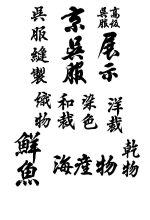 高級呉服
展示
京呉服
呉服縫製
洋裁
染色
和裁
織物
乾物
海産物
鮮魚